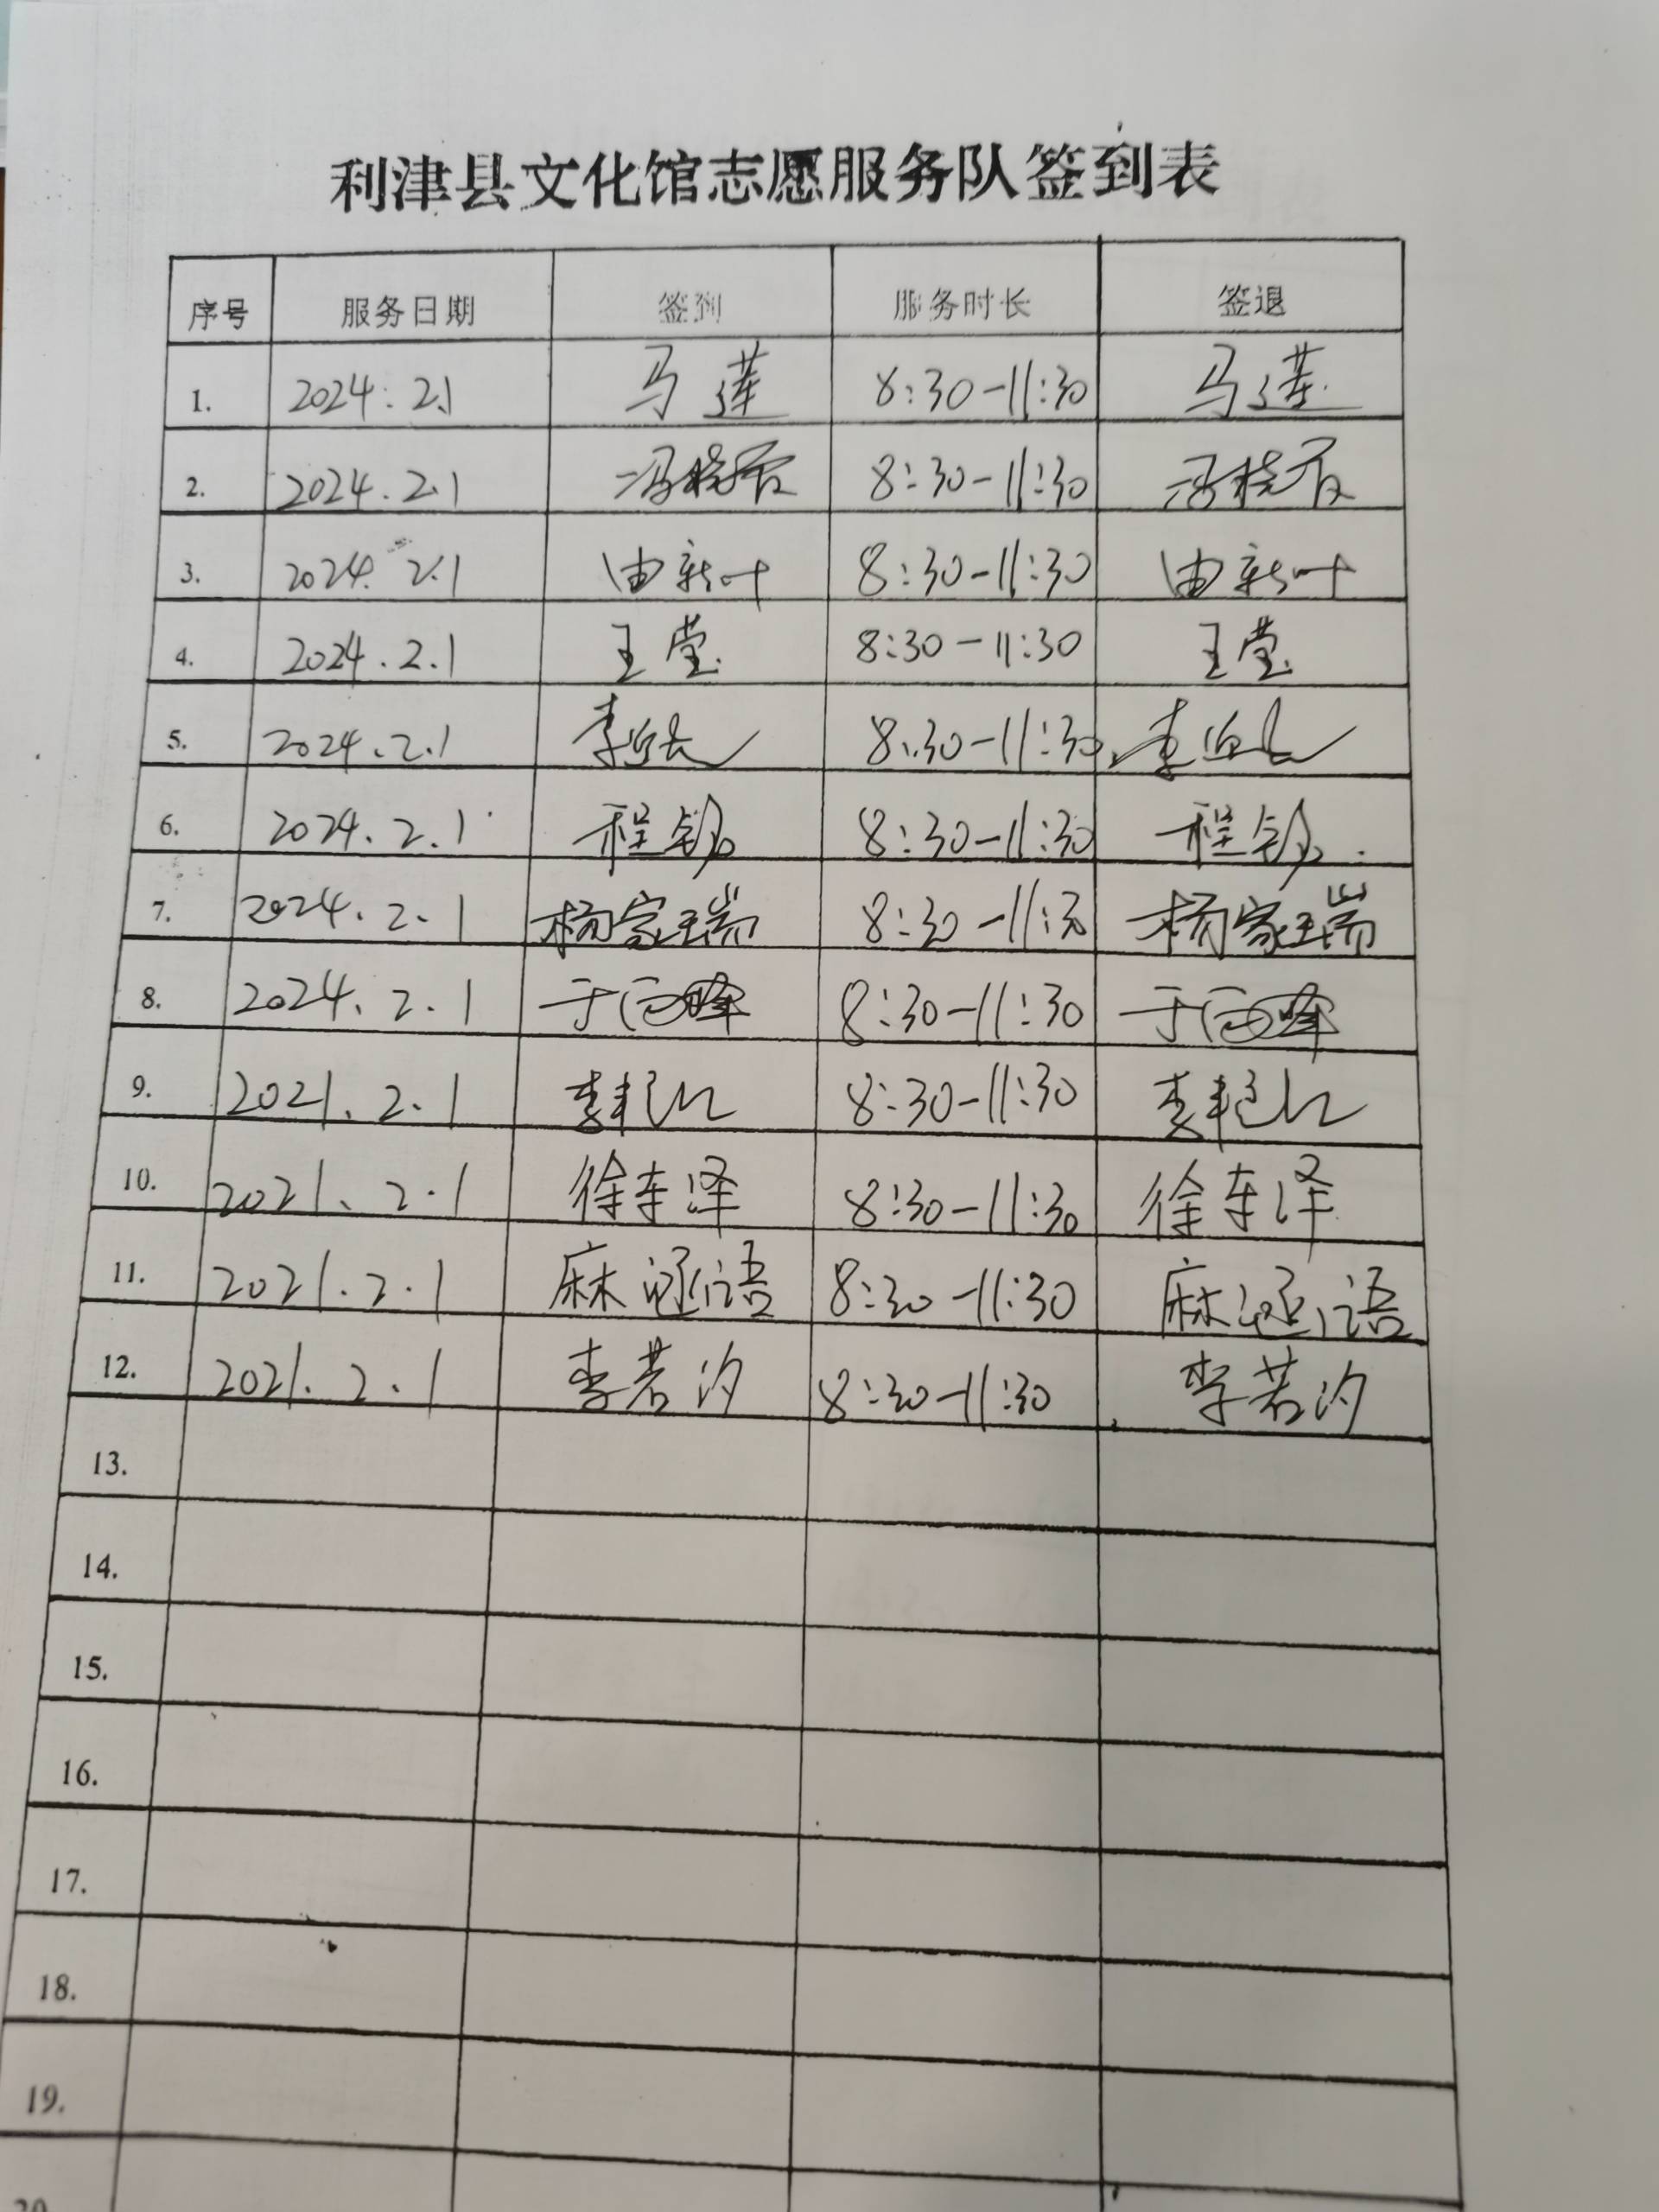 利津县文化馆志愿服务队签到表
序号 服务日期 签到 服务时长 签退
1. 2024.2.1 马莲 8:30-11:30 马莲
2. 2024.2.1 8:30-11:30
3. 2024.2.1 由新叶 8:30-11:30 由新叶
4. 2024.2.1 王莹 8:30-11:30 王莹
5. 2024.2.1 8:30-11:30
6. 2024.2.1 8:30-11:30
7. 2024.2.1 杨家瑞 8:30-11:30 杨家瑞
8. 2024.2.1 8:30-11:30
9. 2021.2.1 8:30-11:30
10. 2021.2.1 徐东泽 8:30-11:30 徐东泽
11. 2021.2.1 8:30-11:30
12. 2021.2.1 李若汐 8:30-11:30 李若汐
13.
14.
15.
16.
17.
18.
19.
20